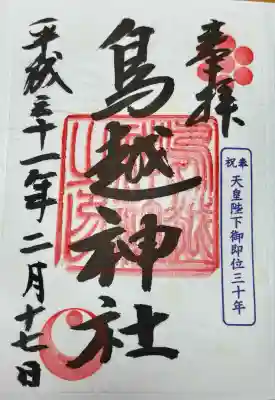 奉拝
奉祝 天皇陛下御即位三十年
鳥越神社
平成三十一年二月十七日